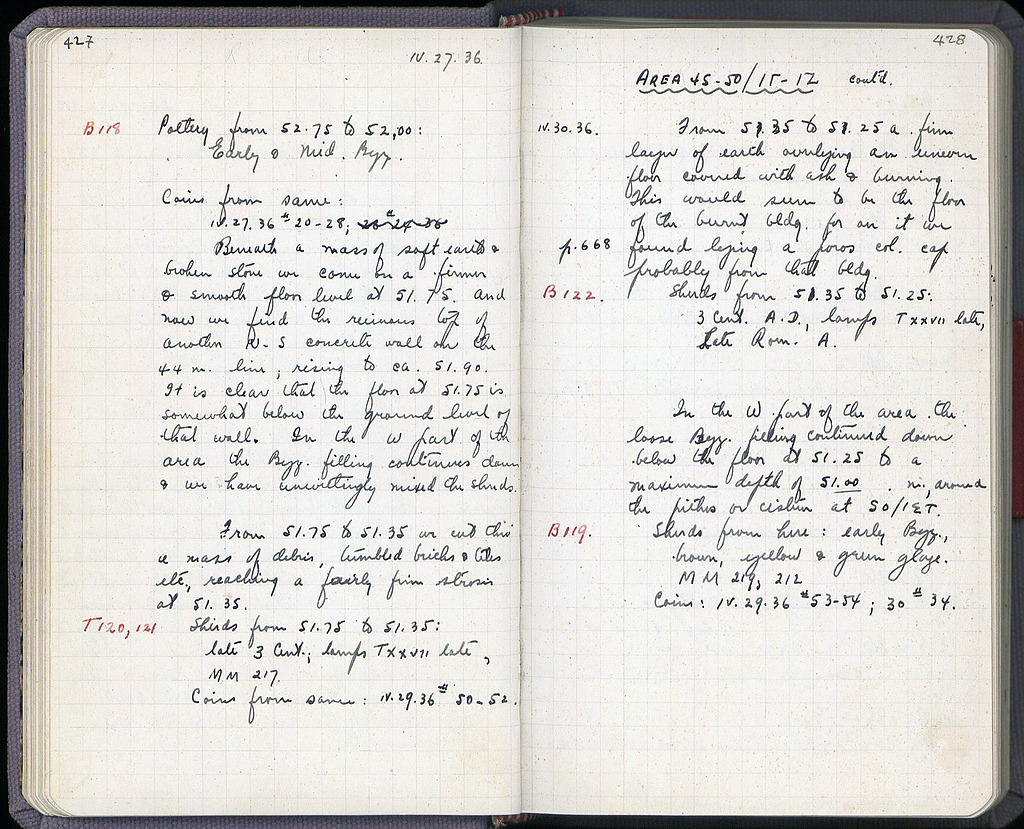 427
IV. 27. 36.
B118 Pottery from 52.75 to 52,00:
Early & Mid. Byz.
Coins from same:
IV. 27. 36 # 20-28;
Beneath a mass of soft earth &
broken stone we come on a firmer
& smooth floor level at 51.75. and
now we find the ruinous top of
another N-S concrete wall on the
44 m. line, rising to ca. 51.90.
It is clear that the floor at 51.75 is
somewhat below the ground level of
that wall. In the W part of the
area the Byz. filling continues down
& we have unwittingly mixed the sherds.
From 51.75 to 51.35 we cut thro
a mass of debris, tumbled bricks & tiles
etc., reaching a fairly firm strosis
at 51.35.
T120, 121 Sherds from 51.75 to 51.35:
late 3 Cent.; lamps TXXVII late,
MM 217.
Coins from same: IV.29.36 # 50-52.
428
AREA 45-50/ΙΓ-ΙΖ cont'd.
IV. 30. 36. From 51.35 to 51.25 a firm
layer of earth overlying an uneven
floor covered with ash & burning.
This would seem to be the floor
of the burnt bldg. for on it we
p. 668 found lying a poros col. cap
probably from that bldg.
B122. Sherds from 51.35 to 51.25:
3 Cent. A.D., lamps TXXVII late,
Late Rom. A.
In the W part of the area the
loose Byz. filling continued down
below the floor at 51.25 to a
maximum depth of 51.00 m., around
the pithos or cistern at 50/ΙΣΤ.
B119. Sherds from here: early Byz.,
brown, yellow & green glaze.
MM 219, 212
Coins: IV.29.36 # 53-54; 30 # 34.